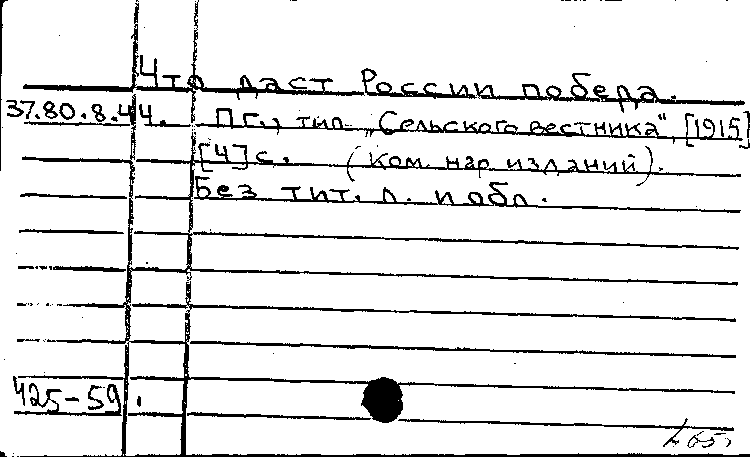 Что даст России победа.
37.80.8.44. ПГ., тип. „Сельского вестника", [1915]
[4] с. (Ком. нар. изданий).
Без тит. л. и обл.
425-59.